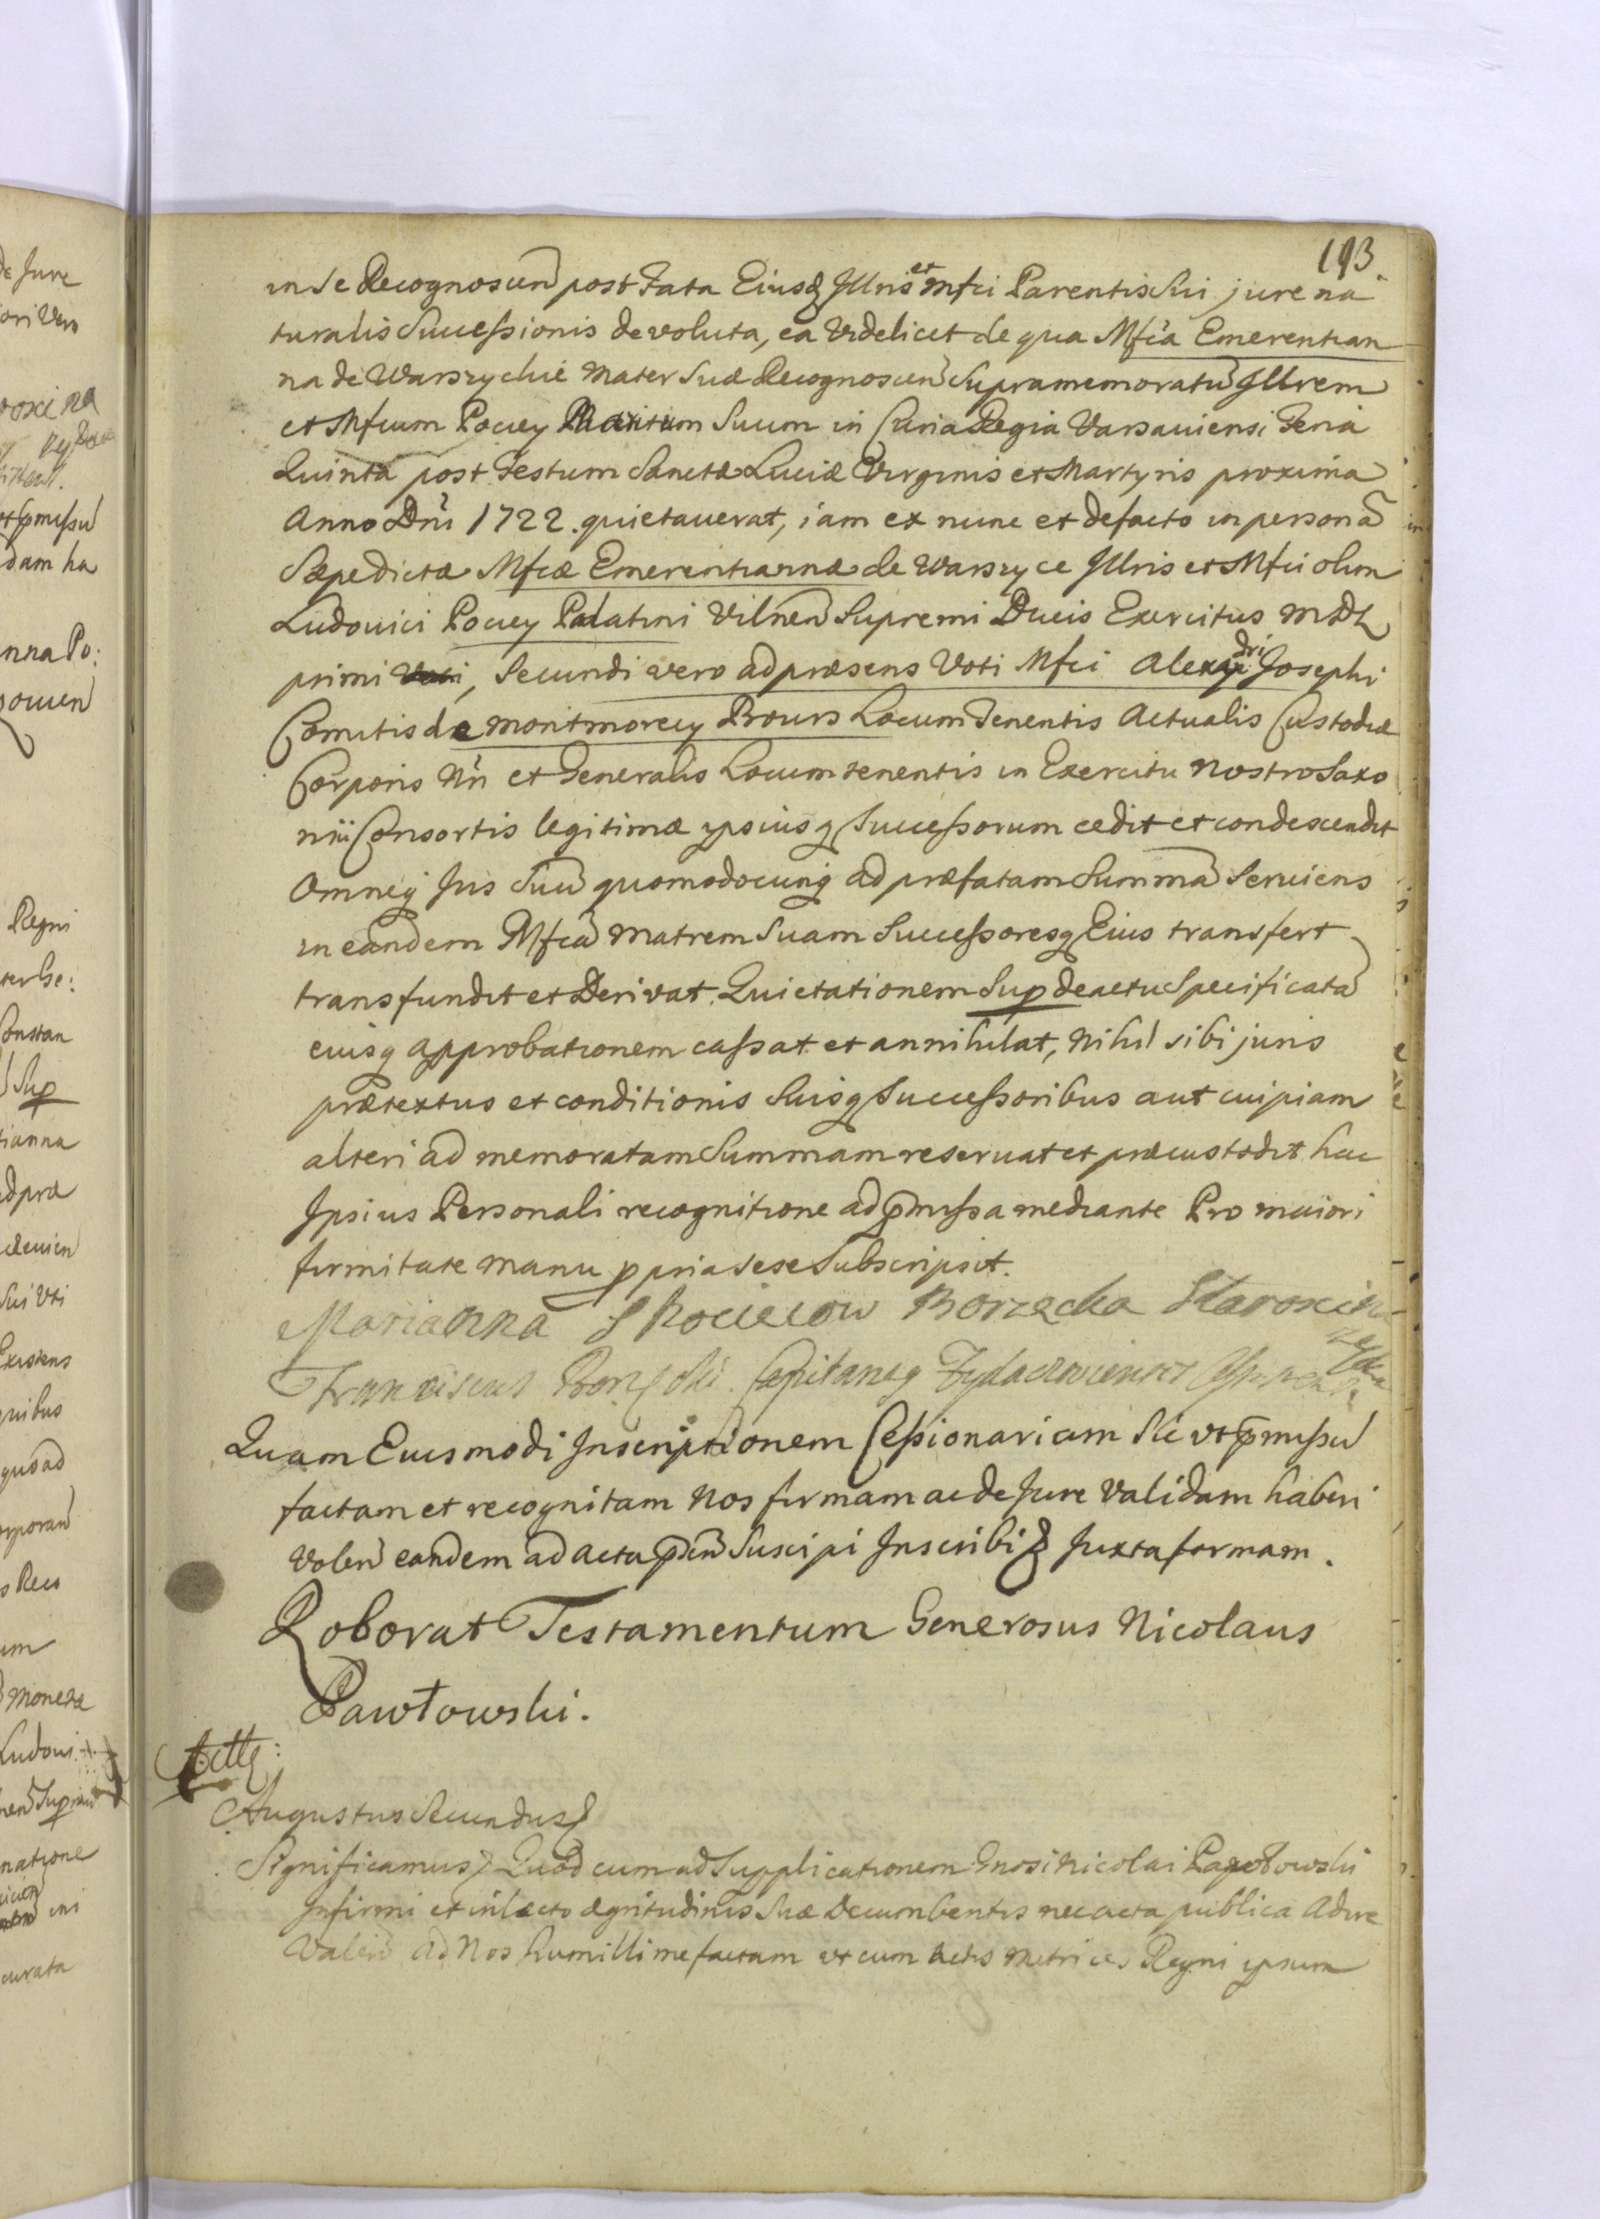 193.
in se Recognoscen post Fata Eiusd Illris et Mfci Parentis Sui jure na
turalis Successionis devoluta, ea videlicet de qua Mfca Emerentian
na de Warszyckie Mater Suæ Recognoscen Supramemoratu Illrem
et Mfcum Pociey Maritum Suum in Curia Regia Varsaviensi Feria
Quinta post Festum Sanctæ Luciæ Virginis et Martyris proxima
Anno Dni 1722. quietauerat, iam ex nunc et defacto in persona
Sæpedictæ Mfcæ Emerentiannæ de Warszyce Illris et Mfci olim
Ludovici Pociey Palatini Vilnen Supremi Ducis Exercitus MDL
primi Voti, Secundi vero ad præsens Voti Mfci Alexandri Josephi
Comitis de Montmorecy Bours Locum Tenentis Actualis Custodiæ
Corporis Nri et Generalis Locumtenentis in Exercitu Nostro Saxo
nii Consortis legitimæ ipsiusq Successorum cedit et condescendit
Omneq Jus Suu quomodocunq ad præfatam Summa Serviens
in eandem Mfca Matrem Suam Successoresq Eius transfert
transfundit et Derivat. Quietationem Sup de actu Specificata
eiusq approbationem cassat et annihilat, Nihil sibi juris
prætextus et conditionis Suisq Successoribus aut cuipiam
alteri ad memoratam Summam reservat et præcustodit hac
Ipsius Personali recognitione ad pmissa mediante Pro maiori
firmitate manu ppria sese Subscripsit.
Marianna S Pocieiow Borzecka Staroscina
Franciscus Borzęcki Capitaneq
Quam Eiusmodi Inscriptionem Cessionariam Sic vt pmissu
factam et recognitam Nos firmam ac de Jure Validam haberi
Volen eandem ad acta psen Suscipi Inscribiq Juxta formam.
Roborat Testamentum Generosus Nicolaus
Pawłowski.
Augustus Secundus
Significamus Quod cum ad Supplicationem Gnosi Nicolai Pawłowski
Infirmi et in lecto ægritudinis Suæ Decumbentis nec acta publica Adire
Valen Ad Nos humillime factam ut cum Actis Metrices Regni ipsum